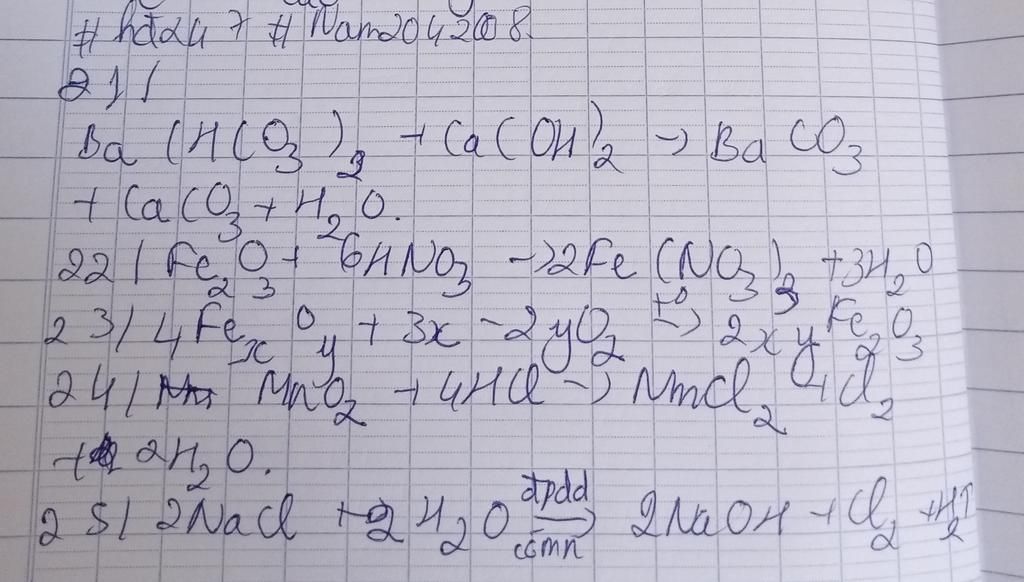 # hdt247 # Nam2042008.
21/
Ba(HCO3)2 + Ca(OH)2 → BaCO3
+ CaCO3 + H2O.
22/ Fe2O3 + 6HNO3 → 2Fe(NO3)3 + 3H2O
23/ 4FexOy + 3x - 2yO2 t0→ 2xyFe2O3
24/ MnO2 + 4HCl → NmCl2 + Cl2
+ 2H2O.
25/ 2NaCl + 2H2O đpdd→cómn 2NaOH + Cl2 + H2↑